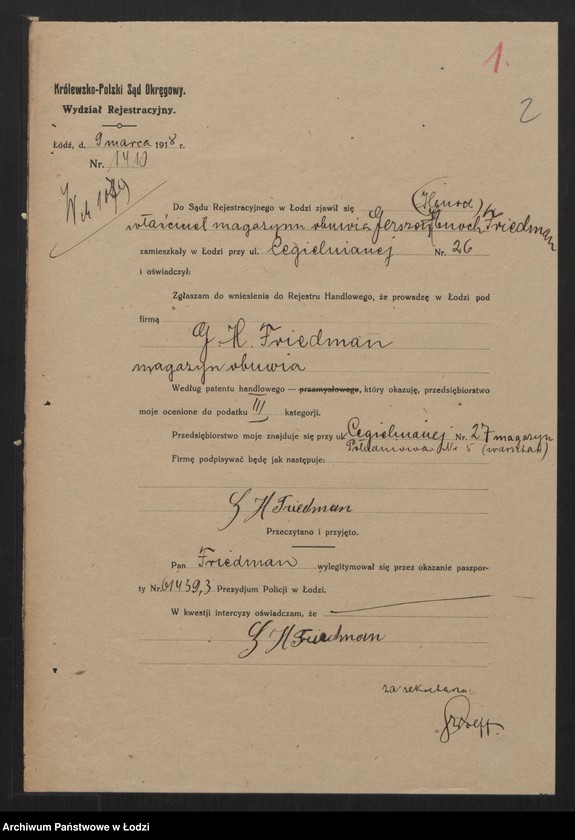 1.
2
Królewsko-Polski Sąd Okręgowy.
Wydział Rejestracyjny.
Łódź, d. 9 marca 1918 r.
Nr. 1410
Do Sądu Rejestracyjnego w Łodzi zjawił się
właściciel magazynu obuwia Gerszon Henoch Friedman
zamieszkały w Łodzi przy ul. Cegielnianej Nr. 26
i oświadczył:
Zgłaszam do wniesienia do Rejestru Handlowego, że prowadzę w Łodzi pod
firmą
G. H. Friedman
magazyn obuwia
Według patentu handlowego — przemysłowego, który okazuję, przedsiębiorstwo
moje ocenione do podatku III kategorji.
Przedsiębiorstwo moje znajduje się przy ul. Cegielnianej Nr. 27 magazyn
Południowa № 5 (warsztat)
Firmę podpisywać będę jak następuje:
G H Friedman
Przeczytano i przyjęto.
Pan Friedman wylegitymował się przez okazanie paszpor-
ty Nr. 14393 Prezydjum Policji w Łodzi.
W kwestji intercyzy oświadczam, że
G H Friedman
za sekretarza:
Archiwum Państwowe w Łodzi